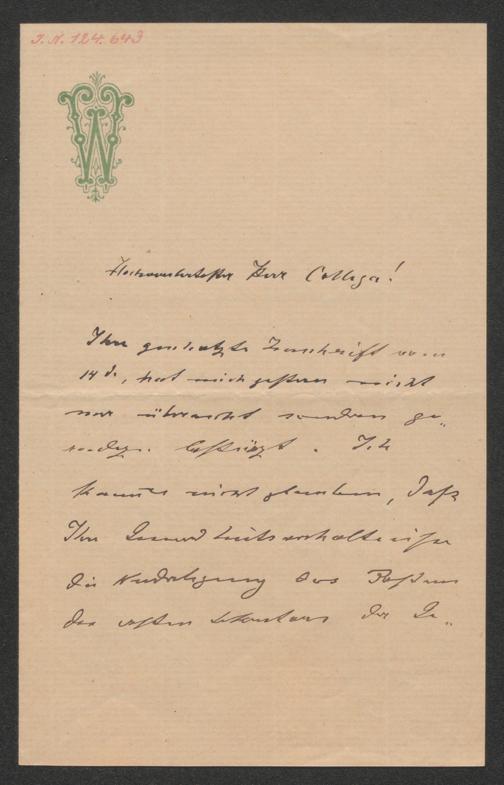 I. N. 124.643
W
Hochverehrtester Herr Collega!
Ihre geschätzte Zuschrift vom
14 d., hat mich gestern nicht
nur überrascht sondern ge-
radezu bestürzt. Ich
konnte nicht glauben, daß
Ihre Gesundheitsverhältnisse
die Niederlegung des Postens
des ersten Sekretärs der Ge-